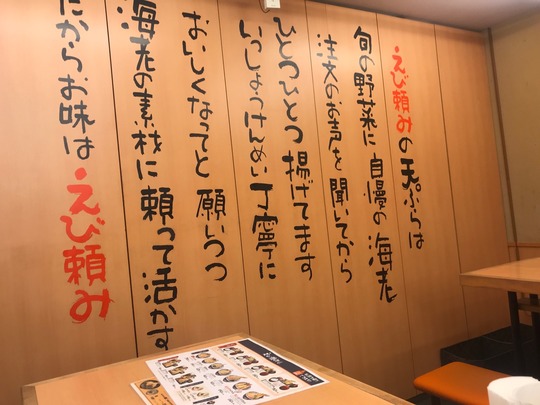 えび頼みの天ぷらは
旬の野菜に自慢の海老
注文のお声を聞いてから
ひとつひとつ揚げてます
いっしょうけんめい丁寧に
おいしくなってと願いつつ
海老の素材に頼って活かす
だからお味はえび頼み